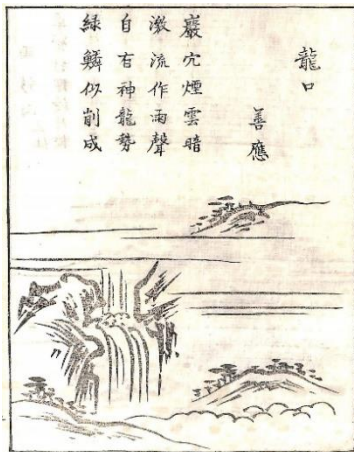 龍口
善應
巖穴煙雲暗
激流作雨聲
自有神龍勢
綠鱗似削成